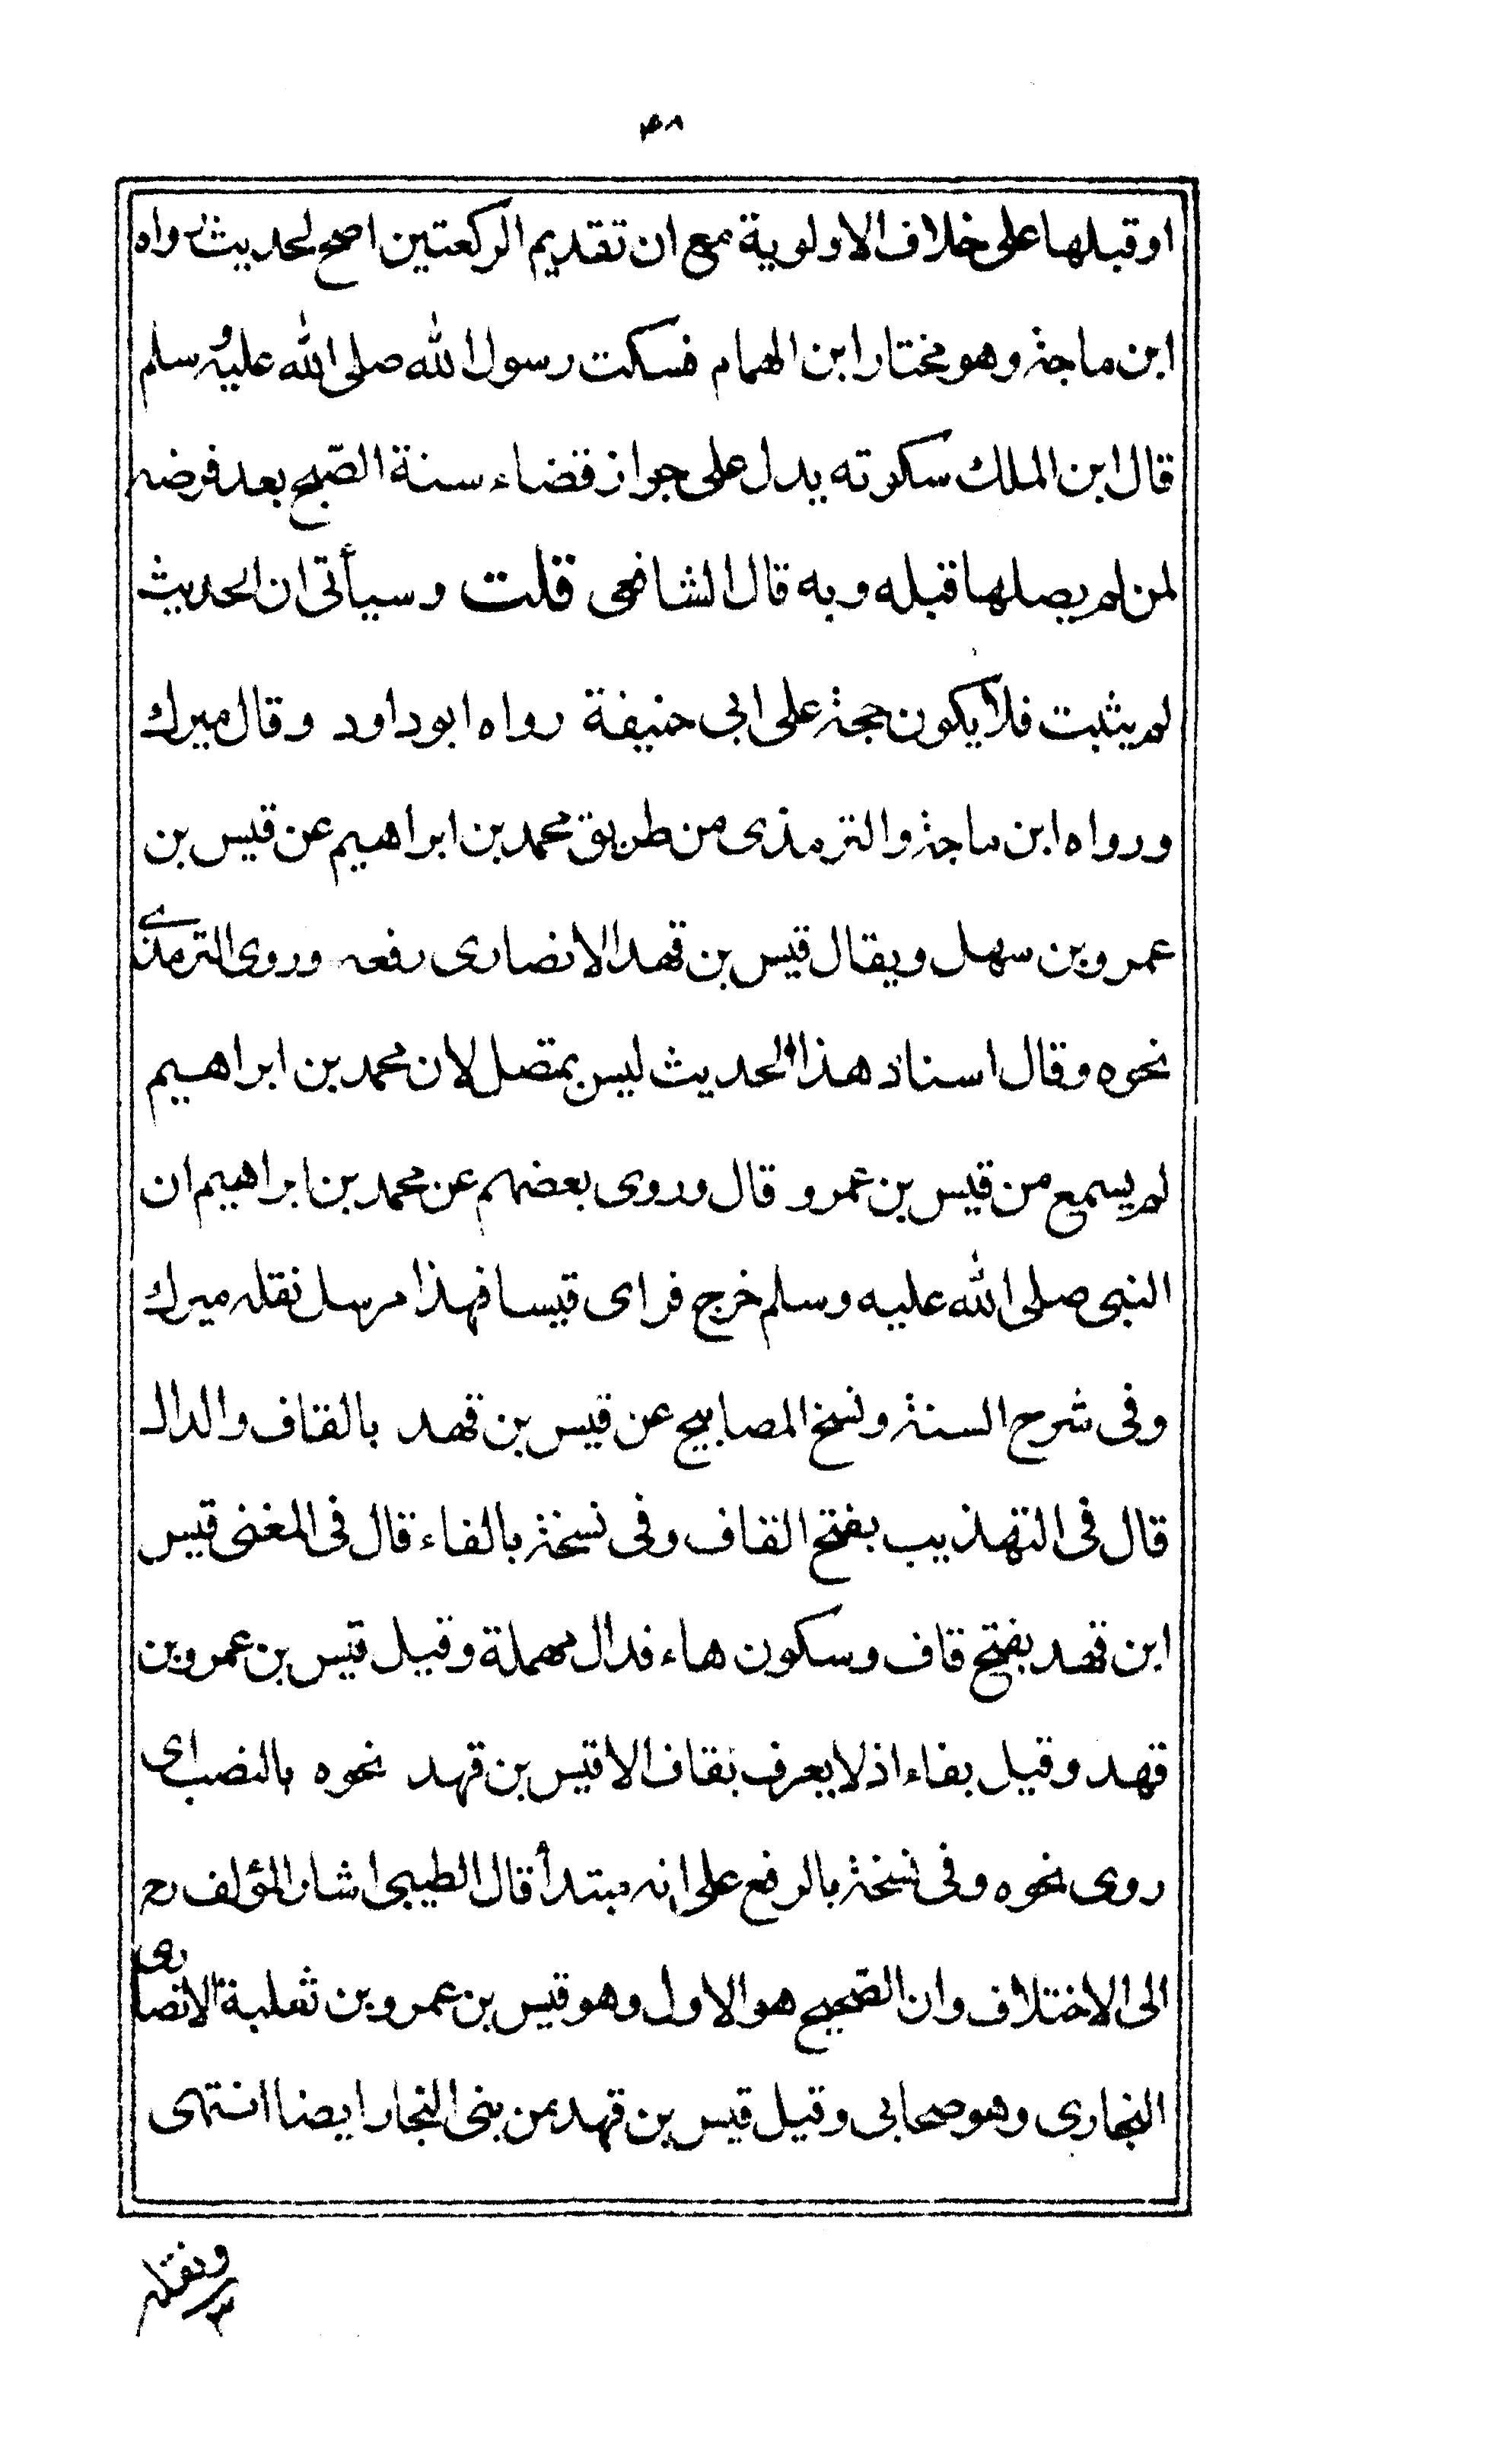 ۴۸
او قبلها على خلاف الاولوية مع ان تقديم الركعتين اصح لحديث رواه
ابن ماجة وهو مختار ابن الهمام فسكت رسول الله صلى الله عليه وسلم
قال ابن الملك سكوته يدل على جواز قضاء سنة الصّبح بعد فرضه
لمن لم يصلها قبله وبه قال الشافعى قلت وسيأتى ان الحديث
لم يثبت فلا يكون حجة على ابى حنيفة رواه ابوداود وقال ميرك
ورواه ابن ماجة والترمذى من طريق محمد بن ابراهيم عن قيس بن
عمرو بن سهل ويقال قيس بن قهد الانصارى رفعه وروى الترمذى
نحوه وقال اسناد هذا الحديث ليس بمتصل لان محمد بن ابراهيم
لم يسمع من قيس بن عمرو قال وروى بعضهم عن محمد بن ابراهيم ان
النبى صلى الله عليه وسلم خرج فراى قيسا فهذا مرسل نقله ميرك
وفى شرح السنة ونسخ المصابيح عن قيس بن قهد بالقاف والدال
قال فى التهذيب بفتح القاف وفى نسخة بالفاء قال فى المغنى قيس
ابن قهد بفتح قاف وسكون هاء فدال مهملة وقيل قيس بن عمرو بن
قهد وقيل بفاء اذ لا يعرف بقاف الا قيس بن قهد نحوه بالنصب اى
روى نحوه وفى نسخة بالرفع على انه مبتدأ قال الطيبى اشار المؤلف رح
الى الاختلاف وان الصّحيح هو الاول وهو قيس بن عمرو بن ثعلبة الانصارى
النجارى وهو صحابى وقيل قيس بن قهد من بنى النجار ايضا انتهى